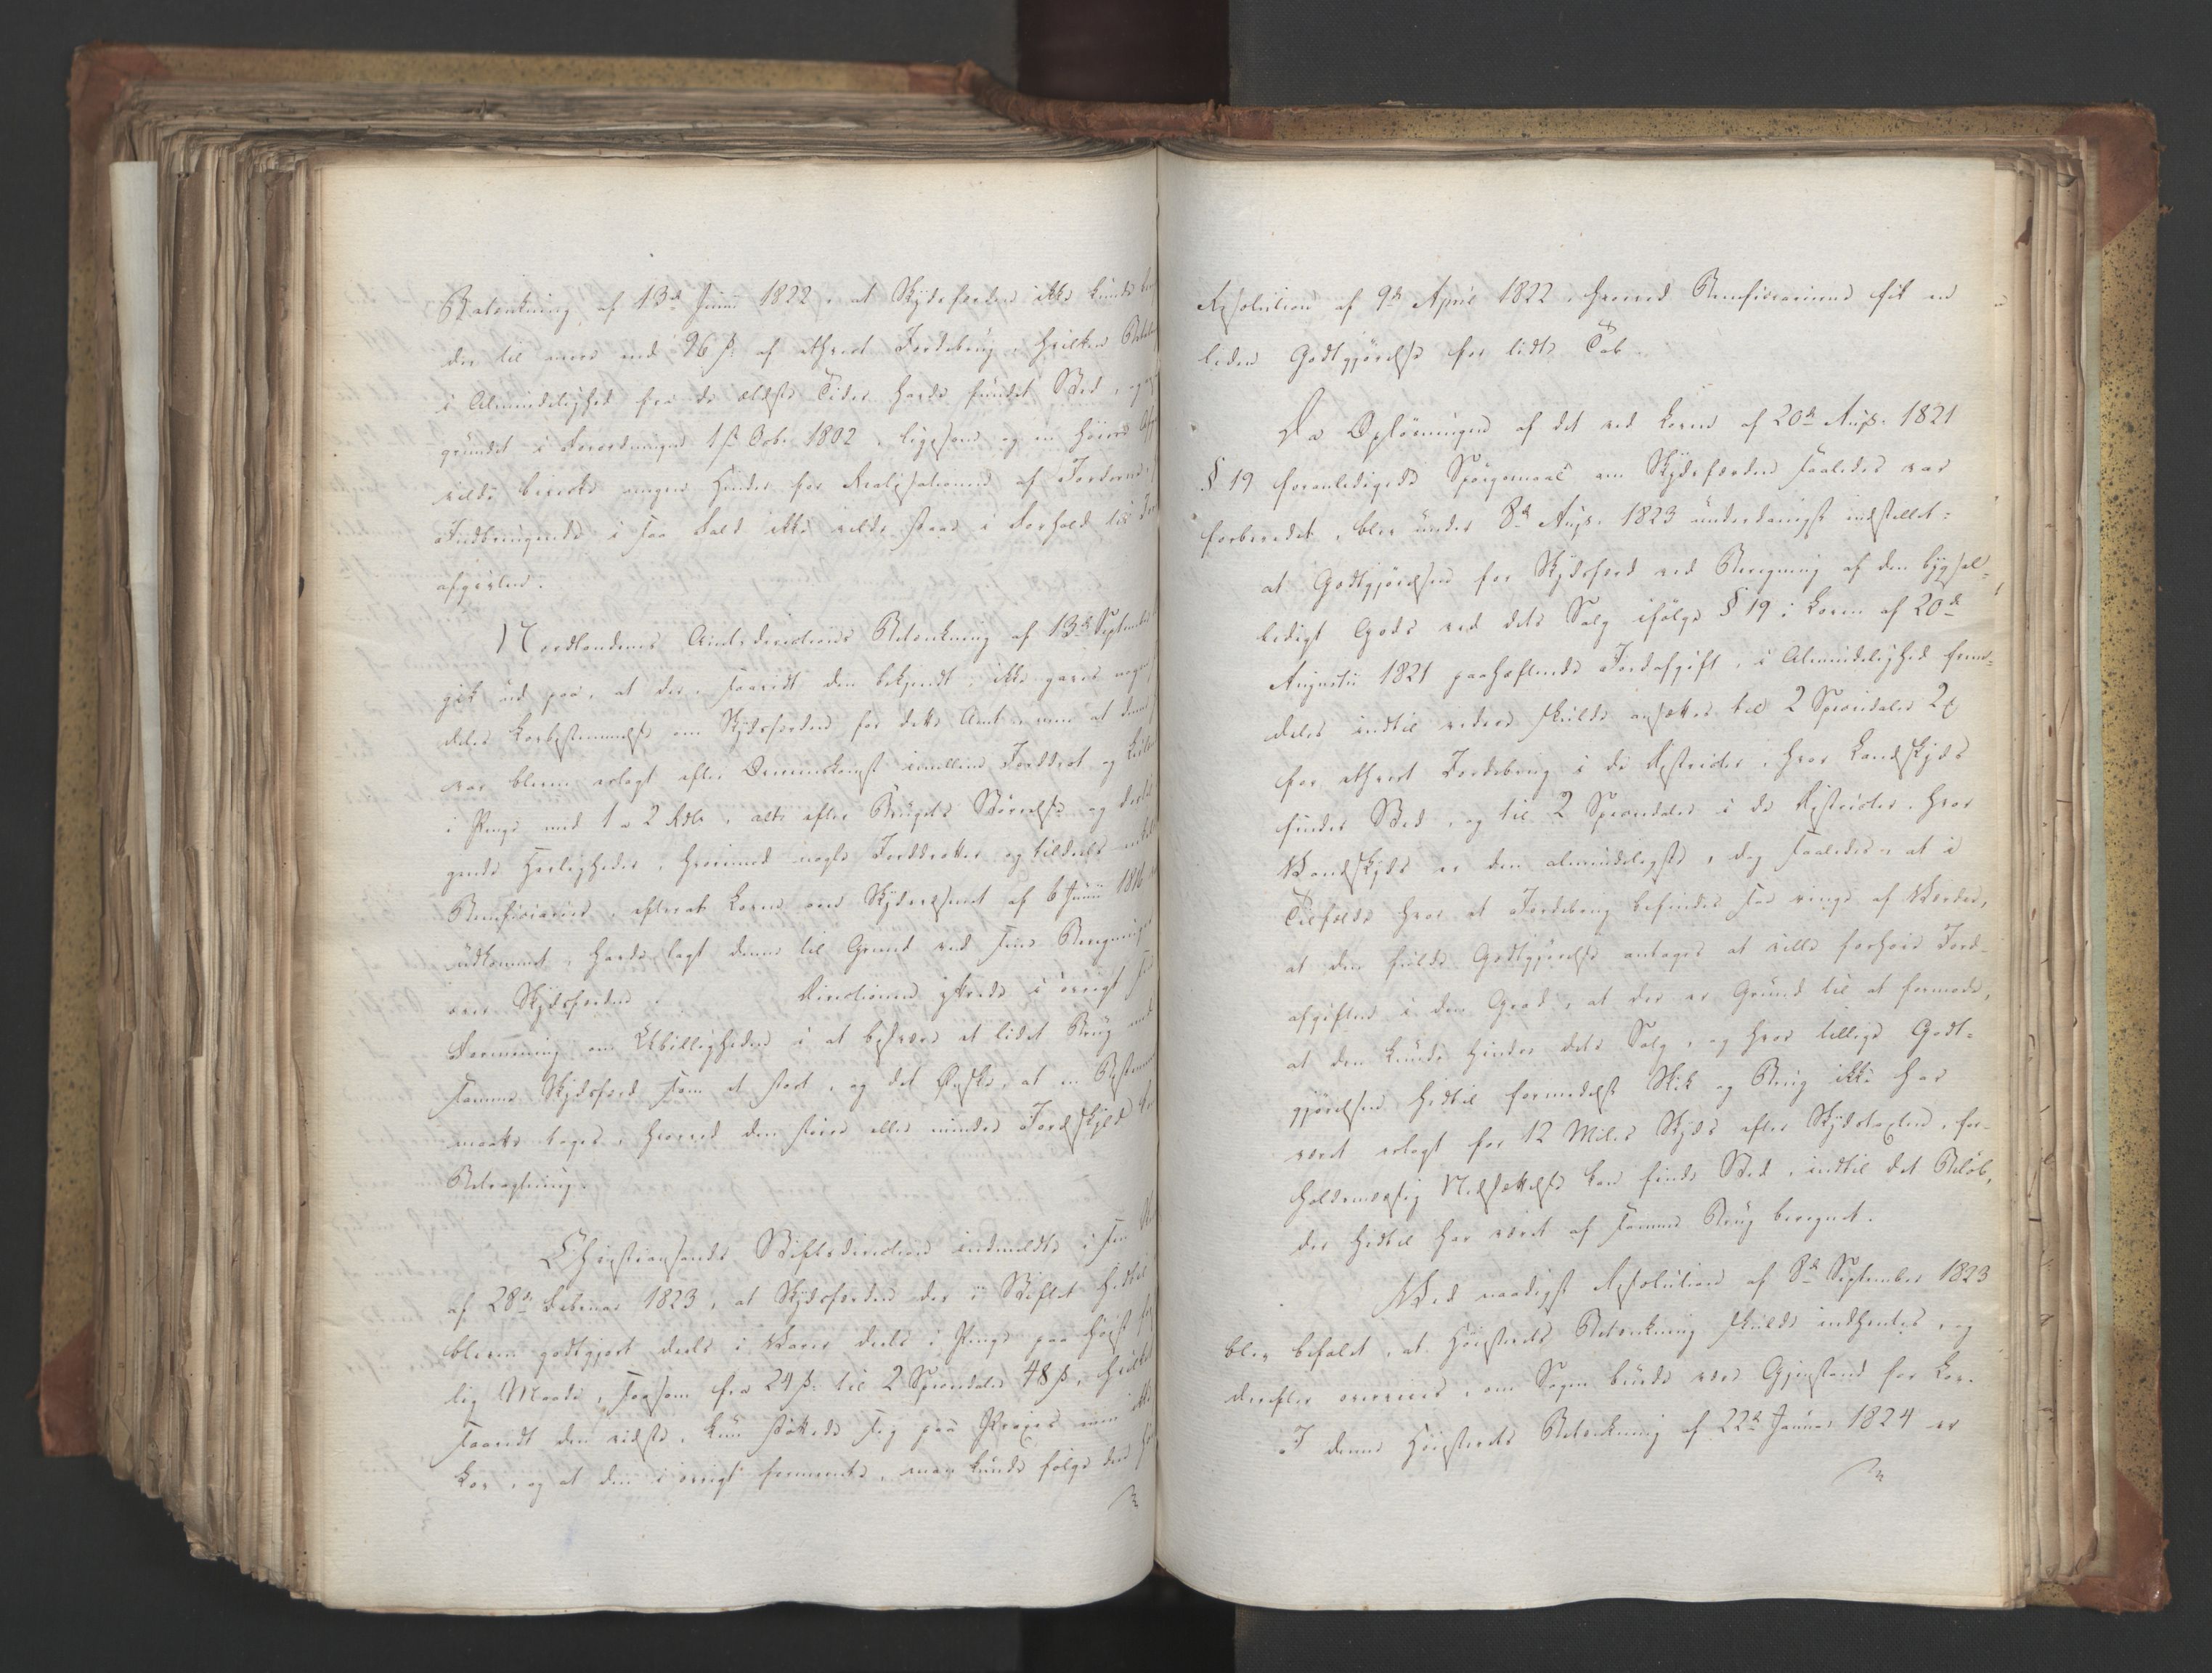 Betænkning af 13de Junii 1822, at Skydsferden ikke kunde
der til mere end 96 s. af ethvert Jordebrug, hvilken
i Almindelighed fra de ældste Tider havde fundet Sted, og
grundet i Forordningen 1ste Octbr 1802, ligesom og en høiere
vilde bevirke megen Hinder for Realisationen af Jorderne,
Indbringende i saa Fald ikke vilde staae i Forhold til
afgivten.
Nordlandenes Amtsdirections Betænkning af 13de September
gik ud paa, at der, saavidt den bekjendt, ikke gaves nogen
deles Lovbestemmelse om Skydsferden for dette Amt, men at denne
var bleven erlagt efter Overenskomst imellem Jorddrot og
i Penge med 1 a 2 Rdlr, alt efter Brugets Størrelse og
gende Herligheder, hvorimod nogle Jorddrotter og tildeels
Beneficiarier, efterat Loven om Skydsvæsenet af 6 Junii 1816
udkommet, havde lagt denne til Grund ved sine Beregninger
over Skydsferden. Directionen yttrede i øvrigt sin
Formening om Ubilligheden i at besvære et lidet Brug med
samme Skydsferd som et stort, og det Ønske, at en
maatte tages, hvorved den større eller mindre Jordskyld
Betragtning.
Christiansands Stiftsdirection indmeldte i sin
af 28de Februar 1823, at Skydsferden der i Stiftet hidtil
bleven godtgjort deels i Varer deels i Penge paa høist
lig Maade, saasom fra 24 s. til 2 Speciedaler 48 s., hvilket
saavidt den vidste, kun støttede sig paa Praxis men ikke
Lov, og at den i øvrigt formeente, man kunde følge den
Resolution af 9de April 1822, hvorved Beneficiarierne fik en
liden Godtgjørelse for lidte Tab.
Da Opløsningen af det ved Loven af 20de Aug. 1821
§ 19 foranledigede Spørgsmaal om Skydsferden saaledes var
forberedet, blev under 8de Aug. 1823 underdanigst indstillet:
at Godtgjørelsen for Skydsferd ved Beregning af den bygsel-
ledigt Gods ved dets Salg ifølge § 19 i Loven af 20de
Augustii 1821 paahæftende Jordafgift, i Almindelighed frem-
deles indtil videre skulde ansættes til 2 Speciedaler 2
for ethvert Jordebrug i de Districter, hvor Landskyds
finder Sted, og til 2 Speciedaler i de Districter, hvor
Vandskyds er den almindeligste, dog saaledes, at i
Tilfælde hvor et Jordebrug befindes saa ringe af Værdie,
at den fulde Godtgjørelse antages at ville forhøie Jord-
afgiften i den Grad, at der er Grund til at formode,
at den kunde hindre dets Salg, og hvor tillige Godt-
gjørelsen hidtil formedelst Skik og Brug ikke har
været erlagt for 12 Miles Skyds efter Skydstaxten, for-
holdsmæssig Nedsættelse kan finde Sted, indtil det Beløb,
der hidtil har været af samme Brug beregnet.
Ved naadigst Resolution af 8de September 1823
blev befalet, at Høiesterets Betænkning skulde indhentes, og
derefter overveies, om Sagen burde være Gjenstand for Lov.
I denne Høiesterets Betænkning af 22de Januar 1824 er